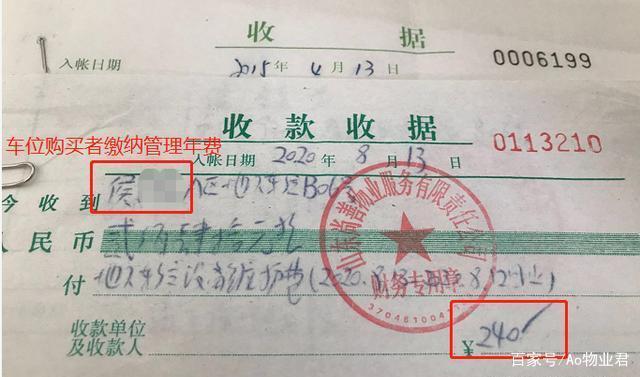 收 据
0006199
入帐日期 2015 年 4 月 13 日
收 款 收 据
0113210
车位购买者缴纳管理年费
入帐日期: 2020 年 8 月 13 日
今 收 到 侯 区地下车位B063
人 民 币 贰佰肆拾元整
付 地下车位设备维护费(2020.8.13
山东尚善物业服务有限责任公司
财务专用章
收款单位
及收款人
¥ 240
百家号/Ao物业君